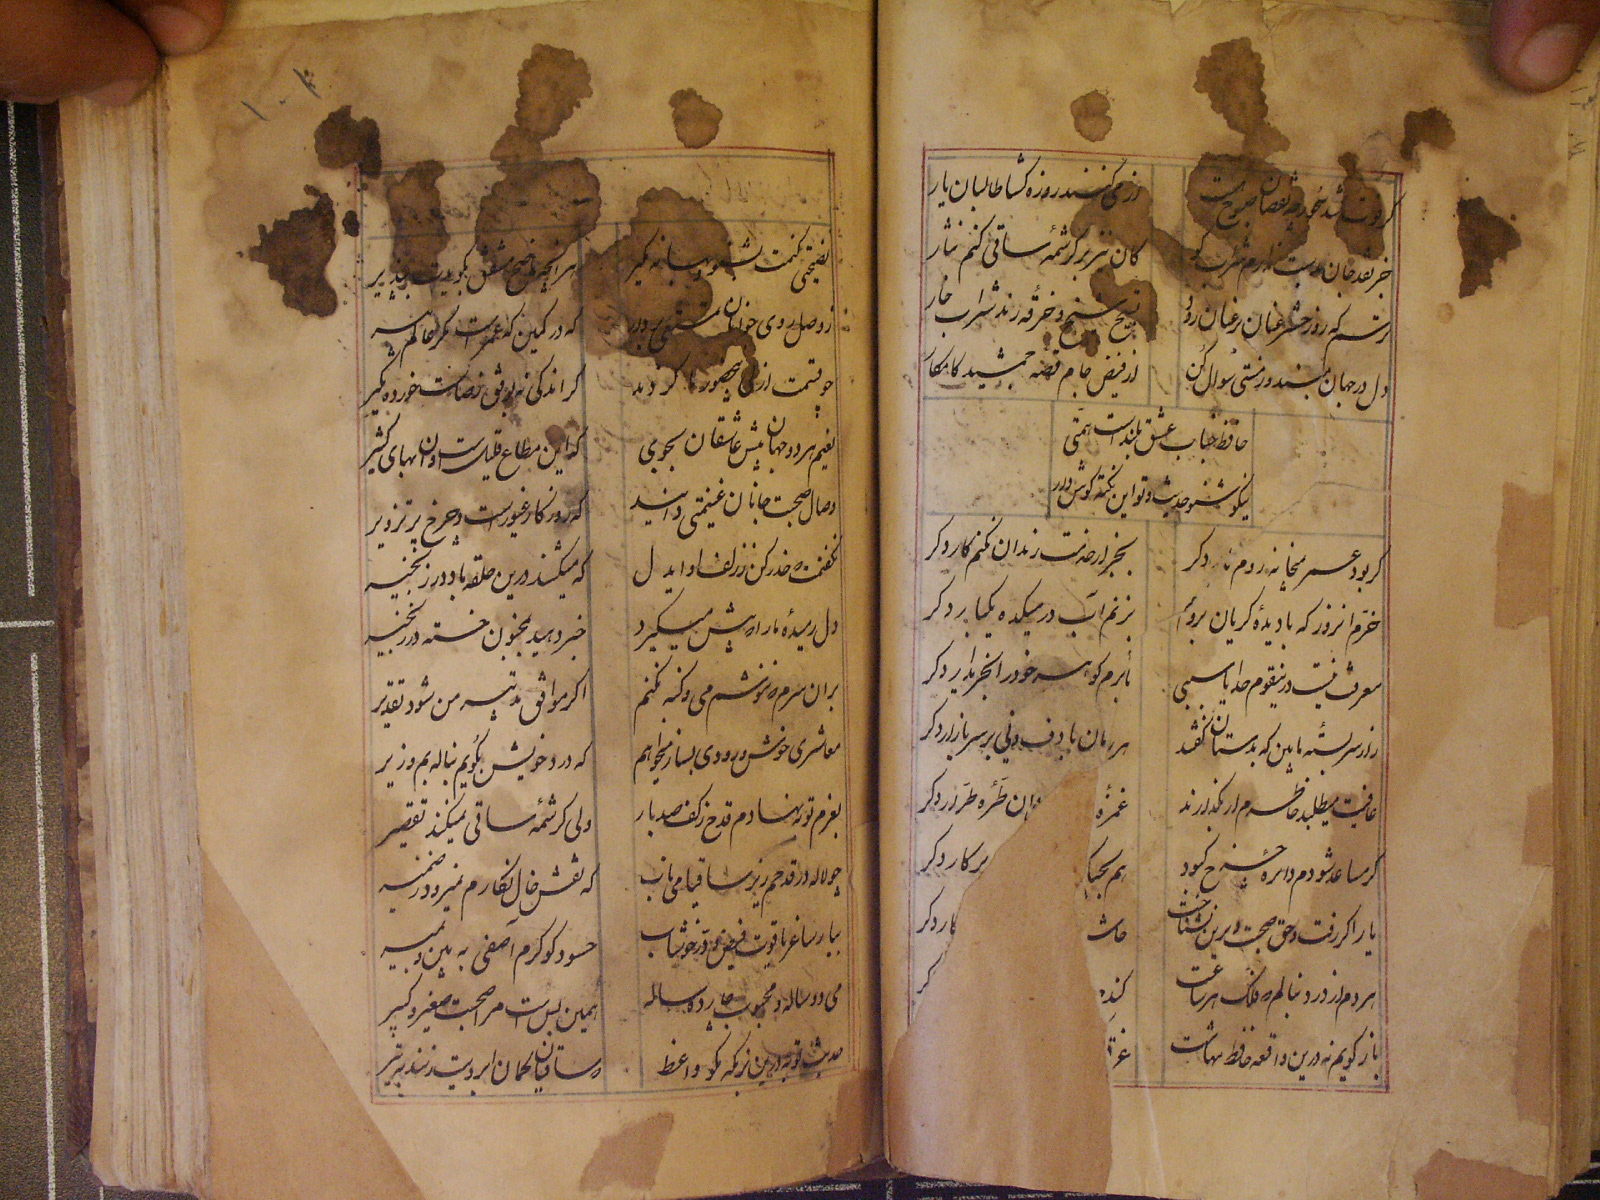 گر فوت شد سحور چه نقصان صبوح هست
از می کنند روزه گشا طالبان یار
جز نقد جان بدست ندارم شراب کو
کان نیز بر کرشمه ساقی کنم نثار
ترسم که روز حشر عنان بر عنان رود
تسبیح شیخ و خرقه رند شراب خوار
دل در جهان مبند و ز مستی سوال کن
از فیض جام قصه جمشید کامکار
حافظ جناب عشق بلندست همتی
نیکو شنو حدیث و تو این نکته گوش دار
گر بود عمر بمیخانه روم بار دگر
بجز از خدمت رندان نکنم کار دگر
خرم آنروز که با دیده گریان بروم
بزنم آب در میکده یکبار دگر
معرفت نیست درینقوم خدایا سببی
تا برم گوهر خود را بخریدار دگر
راز سربسته ما بین که بدستان گفتند
هر زمان با دف و نی بر سر بازار دگر
عافیت میطلبد خاطرم ار بگذارند
غمزه طره طرار دگر
گر مساعد شودم دائره چرخ کبود
هم بکف پرکار دگر
یار اگر رفت و حق صحبت دیرین نشناخت
حاش کار دگر
هر دم از درد بنالم که فلک هر ساعت
کند گر
باز گویم نه درین واقعه حافظ تنهاست
غر
۱۰۳
نصیحتی کنمت بشنو و بهانه مگیر
هر آنچه ناصح مشفق بگویدت بپذیر
ز وصل روی جوانان تمتعی بردار
که در کمین گه عمرست مکر عالم پیر
چو قسمت ازلی بیحضور ما کردند
گر اندکی نه بوفق رضاست خورده مگیر
نعیم هر دو جهان پیش عاشقان بجوی
که این متاع قلیل است و آن بهای کثیر
وصال صحبت جانان غنیمتی دانید
که روزگار غیورست و چرخ پر تزویر
نگفتمت که حذر کن ز زلف او ایدل
که میکشند درین حلقه باد در زنجیر
دل رمیده ما را که پیش میگیرد
خبر دهید بمجنون خسته در زنجیر
بران سرم که ننوشم می و گنه نکنم
اگر موافق تدبیر من شود تقدیر
معاشری خوش و رودی بساز میخواهم
که درد خویش بگویم بناله بم و زیر
بعزم توبه نهادم قدح ز کف صد بار
ولی کرشمه ساقی نمیکند تقصیر
چو لاله در قدحم ریز ساقیا می ناب
که نقش خال نگارم نمیرود ز ضمیر
بیار ساغر یاقوت فیض و در خوشاب
حسود گو کرم آصفی به بین و بمیر
می دو ساله و محبوب چارده ساله
همین بس است مرا صحبت صغیر و کبیر
حدیث توبه درین بزمگه مگو واعظ
که ساقیان کمان ابرویت زنند به تیر